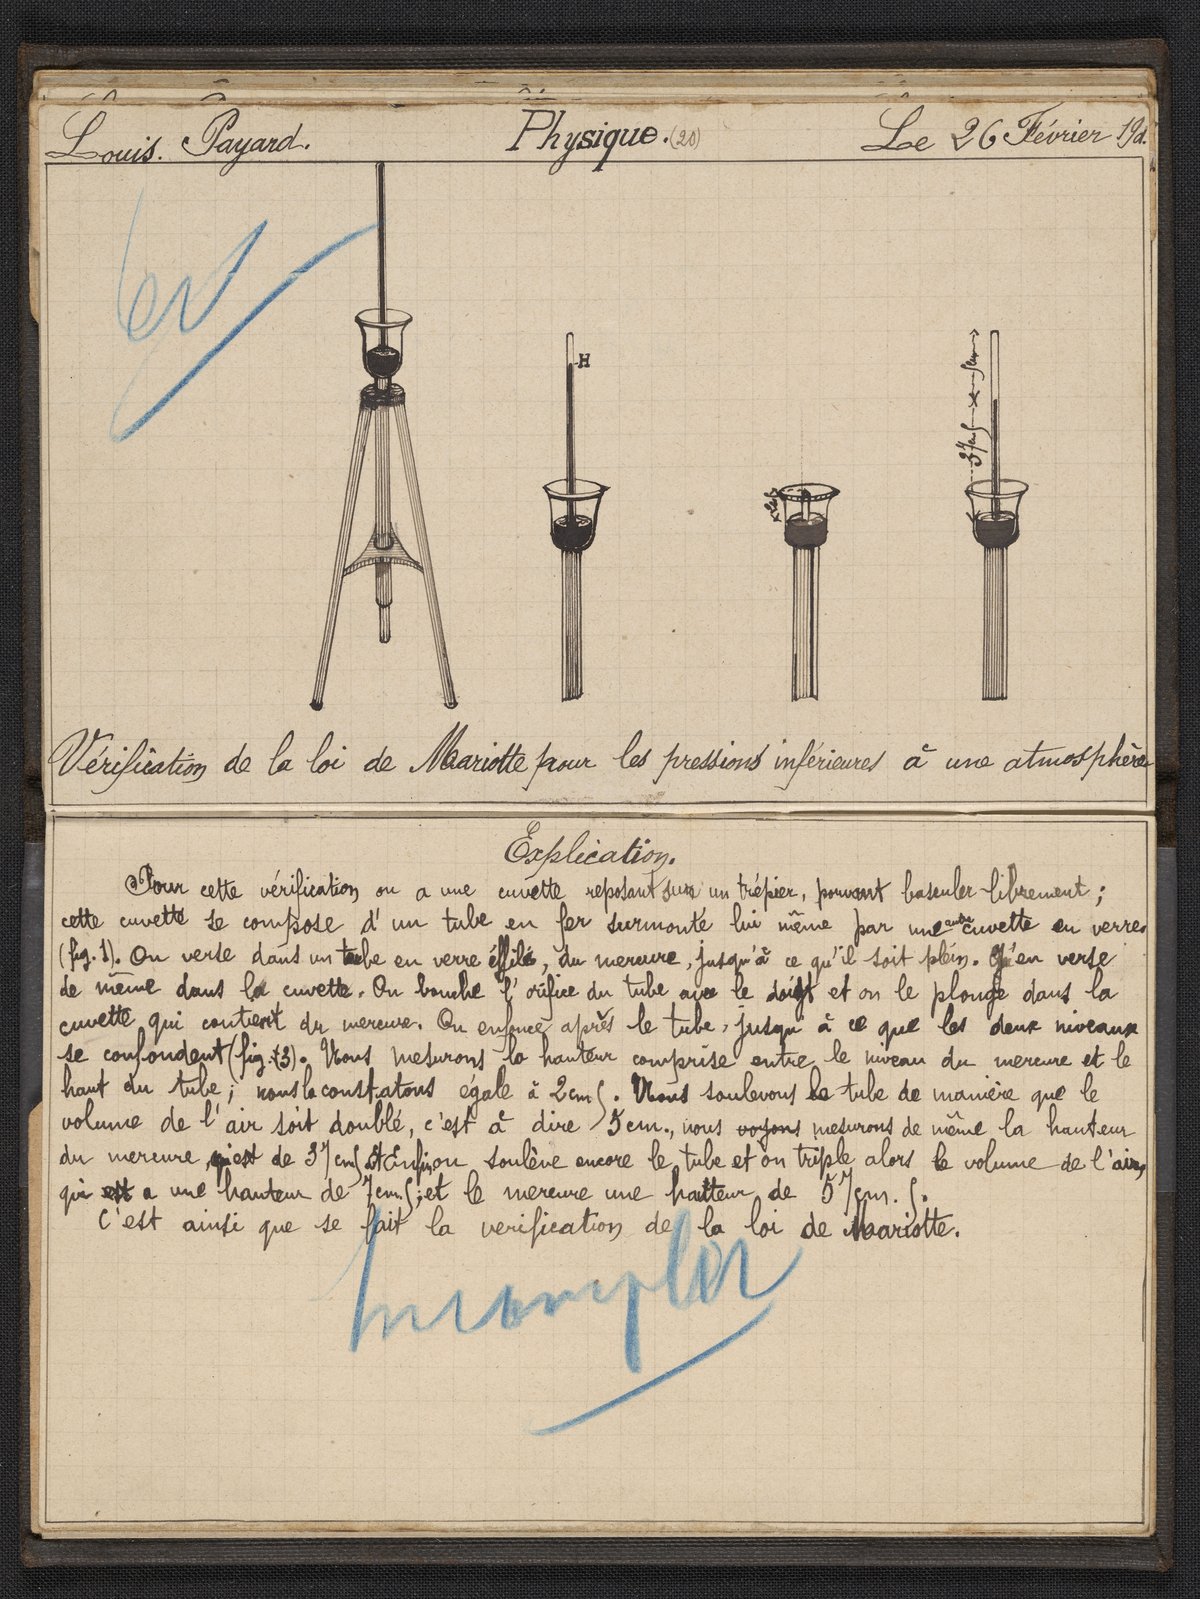 Louis. Payard. Physique. (20) Le 26 Février 19
H
Vérification de la loi de Mariotte pour les pressions inférieures à une atmosphère
Explication.
Pour cette vérification on a une cuvette reposant sur un trépier, pouvant basculer librement ;
cette cuvette se compose d'un tube en fer surmonté lui même par une autre cuvette en verre
(fig. 1). On verse dans un tube en verre éffilé, du mercure, jusqu'à ce qu'il soit plein. On en verse
de même dans la cuvette. On bouche l'orifice du tube avec le doigt et on le plonge dans la
cuvette qui contient du mercure. On enfonce après le tube, jusqu'à ce que les deux niveaux
se confondent (fig. 3). Nous mesurons la hauteur comprise entre le niveau du mercure et le
haut du tube ; nous la constatons égale à 2cm5. Nous soulevons le tube de manière que le
volume de l'air soit doublé, c'est à dire 5cm., nous voyons mesurons de même la hauteur
du mercure, qui est de 37cm5. Enfin, on soulève encore le tube et on triple alors le volume de l'air,
qui est a une hauteur de 7cm.5 ; et le mercure une hauteur de 57cm.5.
C'est ainsi que se fait la verification de la loi de Mariotte.
Incomplet